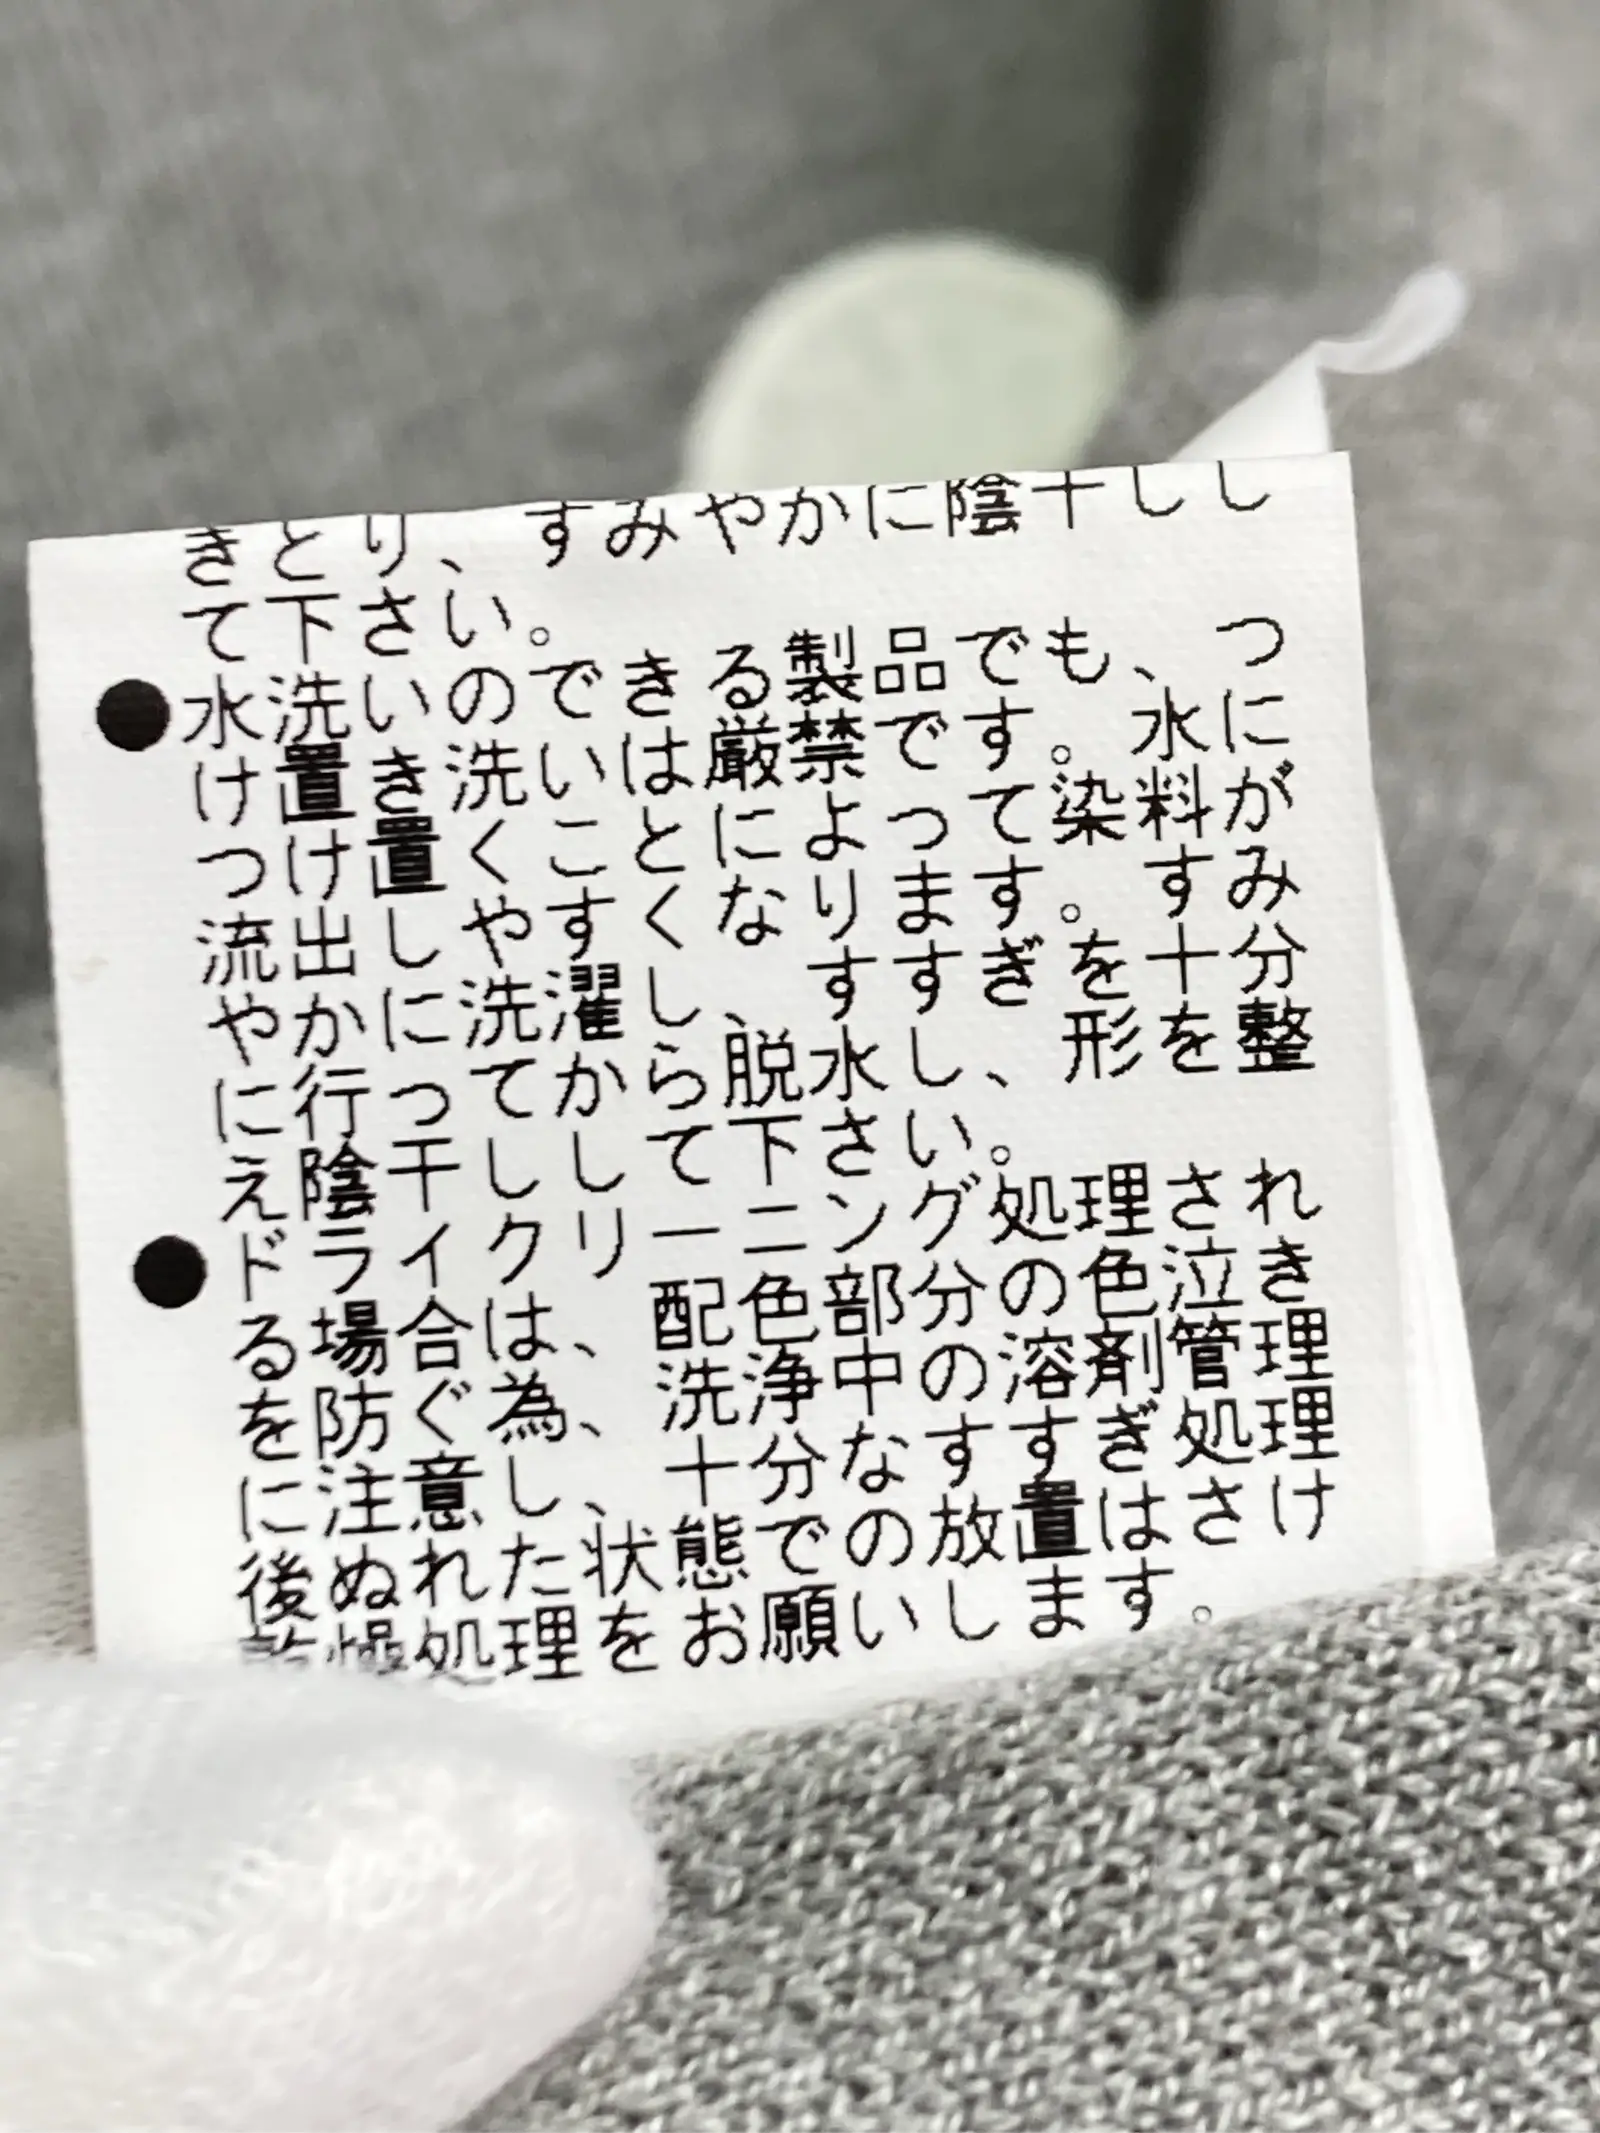 きとり、すみやかに陰干しし
て下さい。
●水洗いのできる製品でも、つ
け置き洗いは厳禁です。水に
つけ置くことによって染料が
流出しやすくなります。すみ
やかに洗濯し、すすぎを十分
に行ってから脱水し、形を整
え陰干しして下さい。
●ドライクリーニング処理され
る場合は、配色部分の色泣き
を防ぐ為、洗浄中の溶剤管理
に注意し、十分なすすぎ処理
後ぬれた状態での放置はさけ
乾燥処理をお願いします。